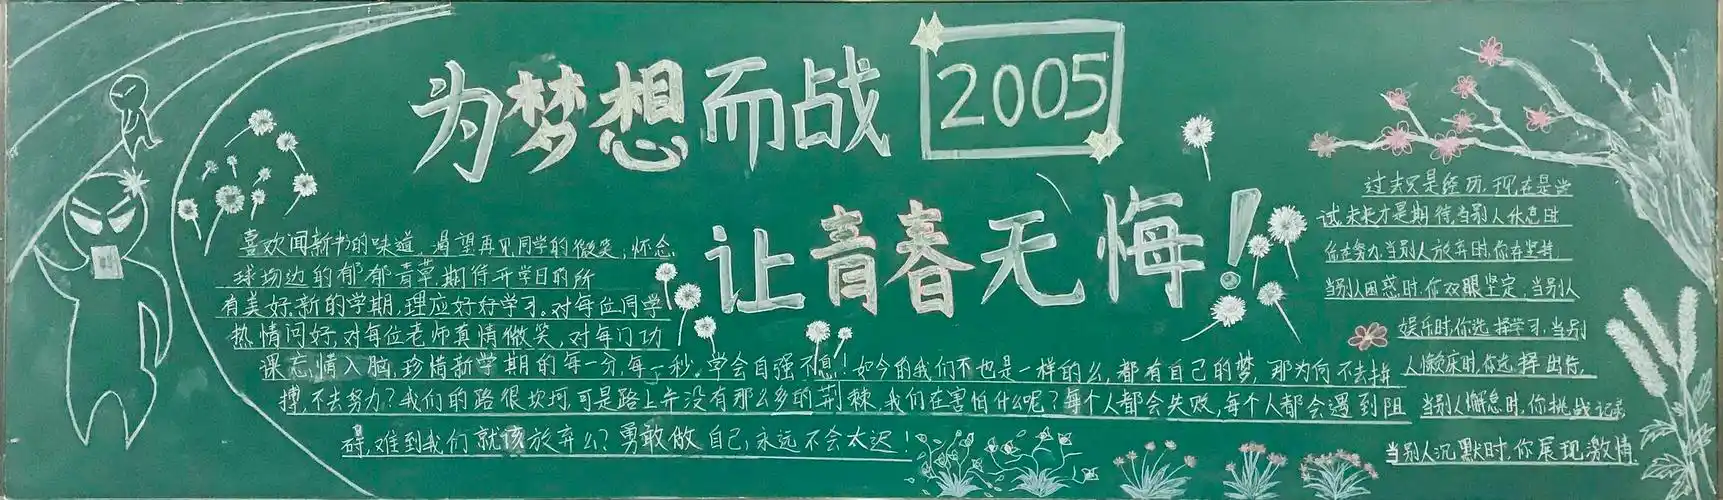 为梦想而战
2005
让青春无悔!
喜欢闻新书的味道,渴望再见同学的微笑;怀念
球场边的郁郁青草,期待开学日的所
有美好,新的学期,理应好好学习。对每位同学
热情问好,对每位老师真情微笑,对每门功
课忘情入脑,珍惜新学期的每一分,每一秒。学会自强不息!如今的我们不也是一样的么,都有自己的梦,那为何不去拼
搏,不去努力?我们的路很坎坷,可是路上并没有那么多的荆棘,我们在害怕什么呢?每个人都会失败,每个人都会遇到阻
碍,难到我们就该放弃么?勇敢做自己,永远不会太迟!
过去只是经历,现在是尝
试,未来才是期待当别人休息时
你在努力,当别人放弃时,你在坚持
当别人困惑时,你双眼坚定,当别人
娱乐时,你选择学习,当别
人懒床时,你选择出行,
当别人懈怠时,你挑战记录
当别人沉默时,你展现激情